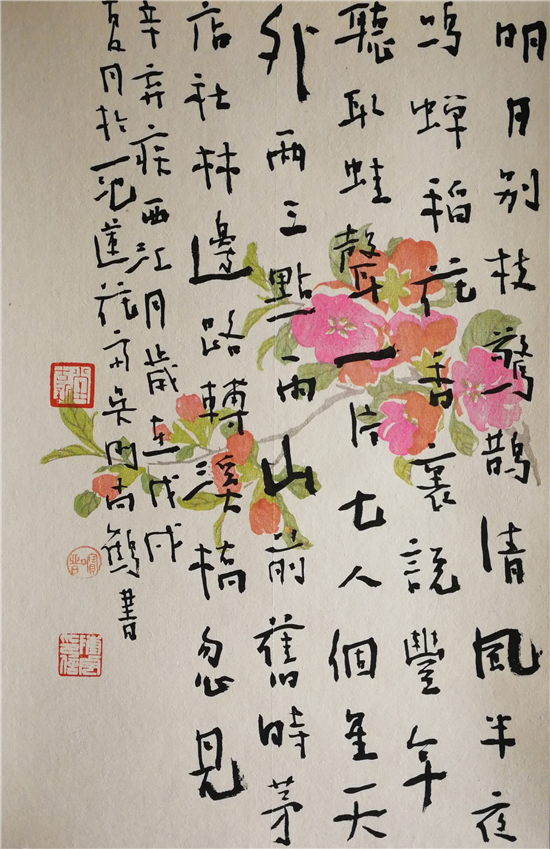 明月别枝驚鹊清風半夜
鳴蟬稻花香裏說豐年
聽取蛙聲一片七八個星天
外兩三點雨山前舊時茅
店社林邊路轉溪橋忽見
辛弃疾西江月歲在戊戌
夏月於一蓮花斋吳門尚鶴書